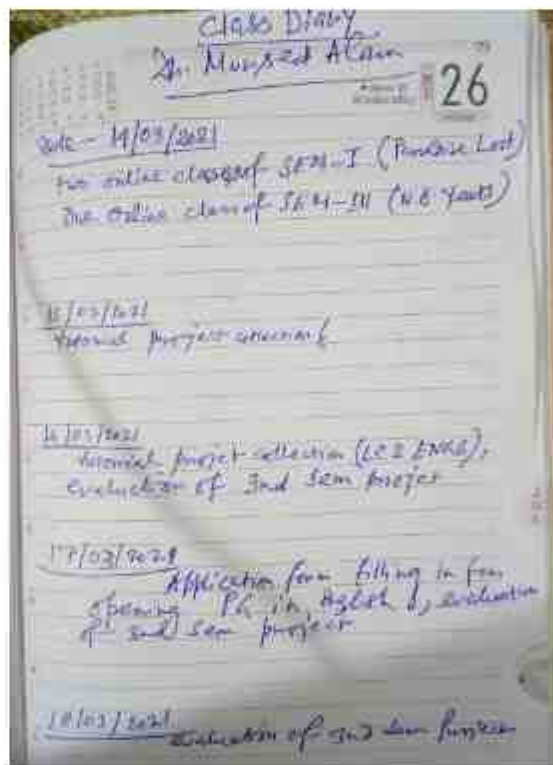 Class Diary
Dr. Mursed Alam
26
Date - 14/03/2021
two online classes of SEM-I (Paradise Lost)
One online class of SEM-III (W B Yeats)
15/03/2021
Tutorial project collection
16/03/2021
tutorial project collection (LCZ ENRG),
evaluation of 3nd Sem project
17/03/2021
Application form filling in for
opening PG in English, evaluation
of 3nd Sem project
18/03/2021
Evaluation of 3nd Sem